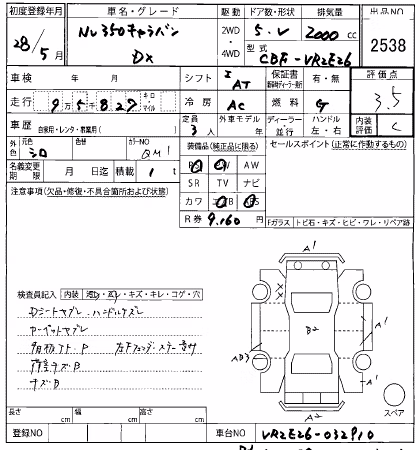 初度登録年月 車名・グレード 駆動 ドア数・形状 排気量 出品NO
28/5月 NV350キャラバン DX 2WD・4WD 5.V 2000 cc 2538
型式 CBF-VR2E26
車検 年 月 シフト I AT 保証書 有・無 評価点 3.5
走行 9万5千827 キロ・マイル 冷房 AC 燃料 G
車歴 自家用・レンタ・教業用( ) 定員 3人 外車モデル 年 ディーラー・並行 ハンドル 左・右 内装評価 C
外色 元色 シロ 色替 カラーNO QM1 装備品(純正品に限る) セールスポイント(正常に作動するもの)
PS PW AW
名義変更期限 月 日迄 積載 1 t SR TV ナビ
注意事項(欠品・修復・不具合箇所および状態) カワ ABS
R券 9,160円
Fガラス トビ石・キズ・ヒビ・ワレ・リペア跡
検査員記入 内装 ・キズ・キレ・コゲ・穴
Dシートヤブレ ハンドルスレ
カーペットヤブレ
荷室キズB
キズB
A1
B2
AB3
A1
A1
A2
スペア
長さ cm 幅 cm 高さ cm
登録NO 車台NO VR2E26-032910